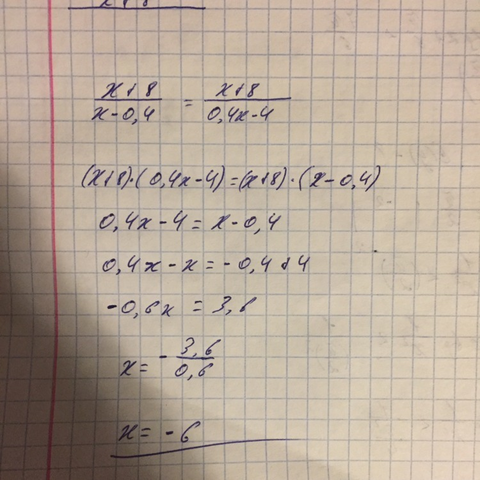 x+8
x+8 / x-0,4 = x+8 / 0,4x-4
(x+8)·(0,4x-4)=(x+8)·(x-0,4)
0,4x-4=x-0,4
0,4x-x=-0,4+4
-0,6x=3,6
x=-3,6/0,6
x=-6